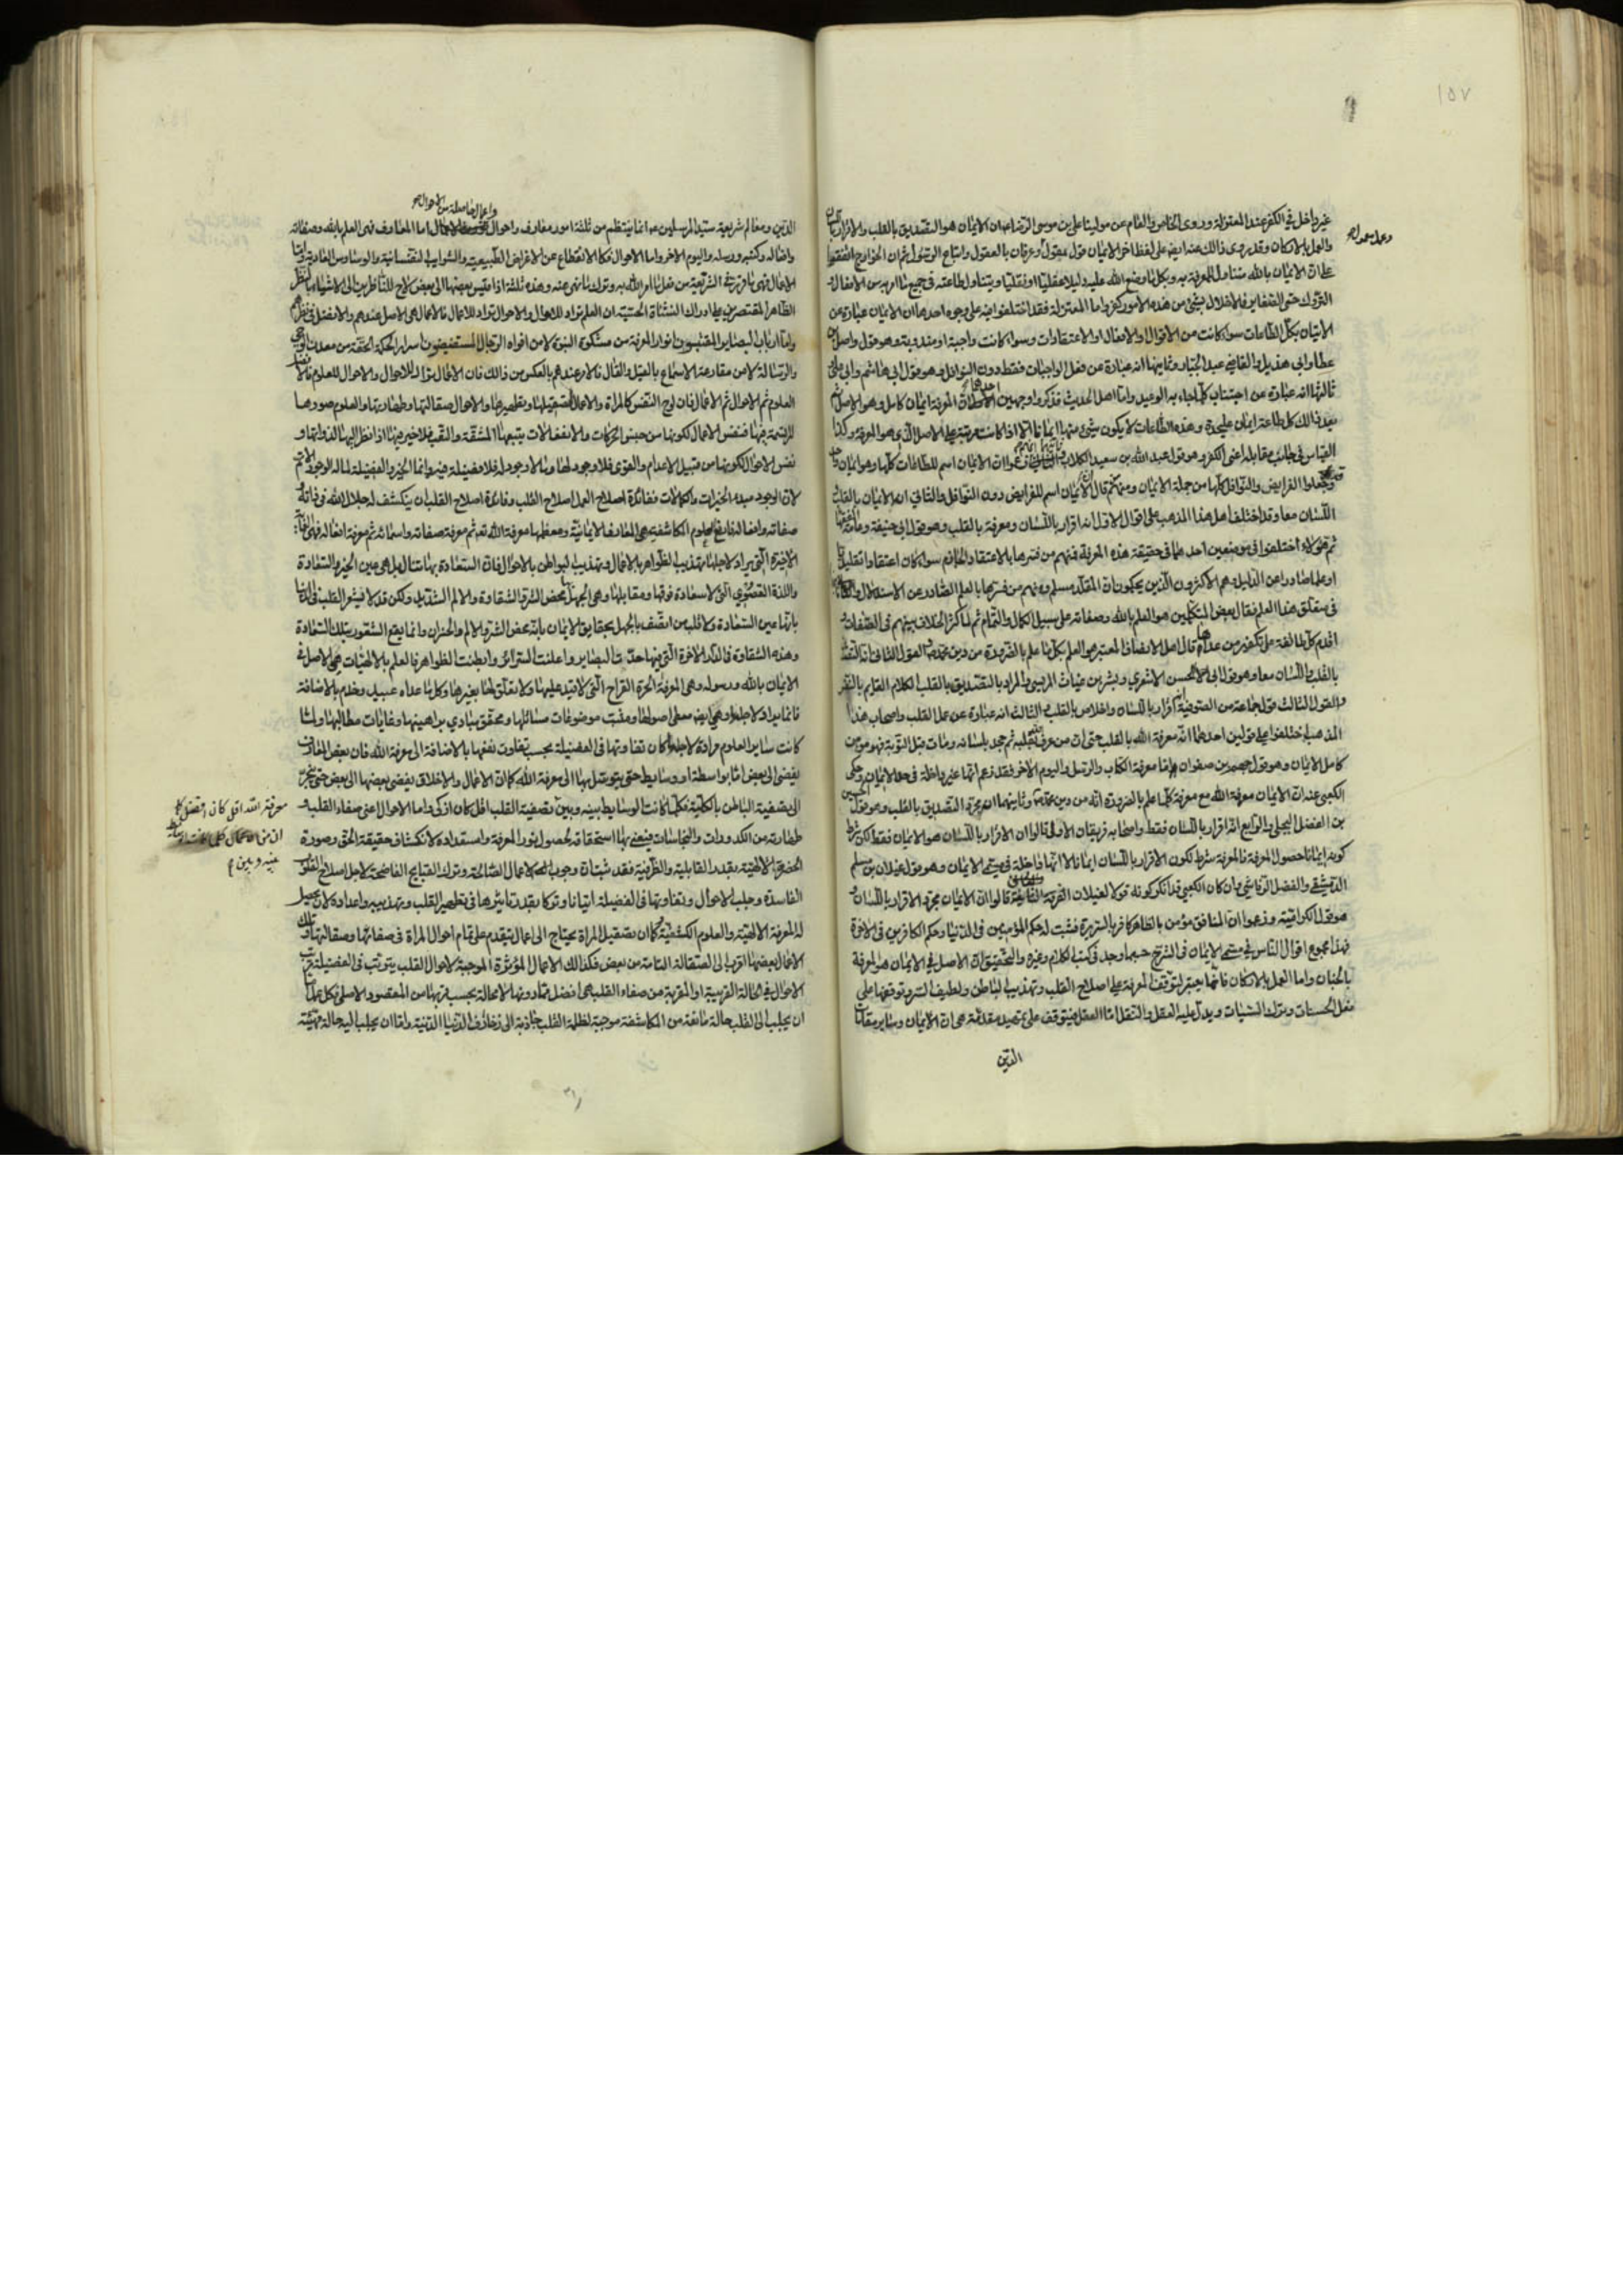 ١٥٧
غير داخل في الكفر عند المعتزلة وروى الخاص والعام عن مولينا علي بن موسى الرضا ان الايمان هو التصديق بالقلب والاقرار باللسان
والعمل بالاركان وقد روى ذالك عنه ايضا على لفظ اخر الايمان قول مقول وعرفان بالعقول واتباع الرسول ثم ان الخوارج اتفقوا
وعمل معمول
على ان الايمان بالله متناول للمعرفة به وبكل ما وضع الله عليه دليلا عقليا او نقليا ويتناول طاعته في جميع ما امر به من الافعال
التروك حتى الصغاير فالاخلال بشيء من هذه الامور كفر واما المعتزلة فقد اختلفوا فيه على وجوه احدها ان الايمان عبارة عن
الاتيان بكل الطاعات سواء كانت من الاقوال والافعال او الاعتقادات وسواء كانت واجبة او مندوبة وهو قول واصل بن
عطا وابي هذيل والقاضي عبد الجبار وثانيها انه عبارة عن فعل الواجبات فقط دون النوافل وهو قول ابي هاشم وابي علي
ثالثها انه عبارة عن اجتناب كلما جاء به الوعيد واما اهل الحديث فذكروا وجهين احدهما ان المعرفة ايمان كامل وهو الاصل ثم
بعد ذالك كل طاعة ايمان عليحدة وهذه الطاعات لا يكون شيء منها ايمانا الا اذا كانت مرتبة على الاصل الذي هو المعرفة وكذا
القياس في جانب مقابله اعني الكفر وهو قول عبد الله بن سعيد الكلاب وثانيهما انهم زعموا ان الايمان اسم للطاعات كلها وهو ايمان واحد
وجعلوا الفرايض والنوافل كلها من جملة الايمان ومنهم من قال الايمان اسم للفرايض دون النوافل والثاني ان الايمان بالقلب
اللسان معا وقد اختلف اهل هذا المذهب على اقوال الاول انه اقرار باللسان ومعرفة بالقلب وهو قول ابي حنيفة وعامة الفقهاء
ثم هؤلاء اختلفوا في موضعين احدهما في حقيقة هذه المعرفة فمنهم من فسرها بالاعتقاد الجازم سواء كان اعتقادا تقليديا
او علما صادرا عن الدليل وهم الاكثرون الذين يحكمون ان المقلد مسلم ومنهم من فسرها بالعلم الصادر عن الاستدلال
في متعلق هذا العلم فقال بعض المتكلمين هو العلم بالله وصفاته على سبيل الكمال والتمام ثم لما كثر الخلاف بينهم في الصفات
اقدم كل طائفة على تكفير من عداها قال اهل الانصاف المعتبر هو العلم بكل ما علم بالضرورة من دين محمد القول الثاني انه التصديق
بالقلب واللسان معا وهو قول ابي الحسن الاشعري وبشر بن غياث المريسي والمراد بالتصديق بالقلب الكلام القايم بالنفس
والقول الثالث قول جماعة من الصوفية انه اقرار باللسان واخلاص بالقلب الثالث انه عبارة عن عمل القلب واصحاب هذا
المذهب اختلفوا على قولين احدهما انه معرفة الله بالقلب حتى ان من عرف الله بقلبه ثم جحد بلسانه ومات قبل التوبة فهو مؤمن
كامل الايمان وهو قول جهم بن صفوان واما معرفة الكتاب والرسل واليوم الاخر فقد زعم انها غير داخلة في حد الايمان وحكى
الكعبي عنه ان الايمان معرفة الله مع معرفة كلما علم بالضرورة انه من دين محمد وثانيهما ان مجرد التصديق بالقلب وهو قول الحسين
بن الفضل البجلي والرابع انه اقرار باللسان فقط واصحابه فريقان الاول قالوا ان الاقرار باللسان هو الايمان فقط لكن شرط
كونه ايمانا حصول المعرفة فالمعرفة شرط لكون الاقرار باللسان ايمانا لا انها داخلة في مسمى الايمان وهو قول غيلان بن مسلم
الدمشقي والفضل الرقاشي وان كان الكعبي قد انكر كونه قولا لغيلان الفرقة الثانية قالوا ان الايمان مجرد الاقرار باللسان و
هو قول الكرامية وزعموا ان المنافق مؤمن بالظاهر كافر بالسريرة فثبت له حكم المؤمنين في الدنيا وحكم الكافرين في الاخرة
فهذا مجموع اقوال الناس في مسمى الايمان في الشرع حسبما وجد في كتب الكلام وغيره والتحقيق ان الاصل في الايمان هو المعرفة
بالجنان واما العمل بالاركان فانما يعتبر لتوقف المعرفة على اصلاح القلب وتهذيب الباطن ولطيف السر وتوقفها على
فعل الحسنات وترك السيئات ويدل عليه العقل والنقل اما العقل فيتوقف على تمهيد مقدمة هي ان الايمان وساير مقامات
الدين
واعمال الحاصلة من الاحوال
الدين ومعالم شريعة سيد المرسلين انما ينتظم من ثلثة امور معارف واحوال اما المعارف فهي العلم بالله وصفاته
وافعاله وكتبه ورسله واليوم الاخر واما الاحوال فكالانقطاع عن الاغراض الطبيعية والشوايب النفسانية والوساوس العادية واما
الاعمال فهي في الشريعة من فعل ما امر الله به وترك ما نهى عنه وهذه ثلثة اذا قيس بعضها الى بعض لاح للناظرين الى الاشياء بالنظر
الظاهر المقتصرين على ادراك النشئاة الحسية ان العلم تراد للاحوال والاحوال تراد للاعمال فالاعمال هي الاصل عندهم والافضل في نظرهم
واما ارباب البصاير المقتبسون انوار المعرفة من مشكوة النبوة لا من افواه الرجال المستفيضون اسرار الحكمة الحقة من معدن الوحي
والرسالة لا من مقارعة الاسماع بالقيل والقال فالامر عندهم بالعكس من ذالك فان الاعمال تراد للاحوال والاحوال للعلوم فالافضل
العلوم ثم الاحوال ثم الاعمال فان لوح النفس كالمرآة والاعمال تصقيلها وتطهيرها والاحوال صقالتها وطهارتها والعلوم صورها
المرتسمة فيها فنفس الاعمال لكونها من جنس الحركات والانفعالات يتبعها المشقة والتعب فلا خير فيها اذا نظر اليها لذواتها و
نفس الاحوال لكونها من قبيل الاعدام والقوى فلا وجود لها وما لا وجود له فلا فضيلة فيه وانما الخير والفضيلة لما له الوجود الاتم
لان الوجود مبدء الخيرات والكمالات ففائدة اصلاح العمل اصلاح القلب وفائدة اصلاح القلب ان ينكشف له جلال الله في ذاته و
صفاته وافعاله فارفع علوم المكاشفة هي المعارف الايمانية ومعظمها معرفة الله تعم ثم معرفة صفاته واسمائه ثم معرفة افعاله فهي الغاية
الاخيرة التي يراد لاجلها تهذيب الظواهر بالاعمال وتهذيب البواطن بالاحوال فان السعادة بها تنال بل هي عين الخير والسعادة
واللذة القصوى التي لا سعادة فوقها ومقابلها وهي الجهل محض الشر والشقاوة والالم الشديد ولكن قد لا يشعر القلب في الدنيا
بانها عين السعادة ولا قلب من اتصف بالجهل بحقايق الايمان بانه محض الشر والالم والخسران وانما يقع الشعور بتلك السعادة
وهذه الشقاوة في الدار الاخرة التي فيها حدت البصاير واعلنت السرائر وابطنت الظواهر فالعلم بالالهيات هي الاصل في
الايمان بالله ورسوله وهي المعرفة الحرة القراح التي لا قيد عليها ولا تعلق لها بغيرها وكل ما عداه عبيد وخدم بالاضافة
فانما يراد لاجلها وهي ايضا معطى اصولها ومثبت موضوعات مسائلها ومحقق مبادي براهينها وغايات مطالبها ولما
كانت ساير العلوم مرادة لاجلها كان تفاوتها في الفضيلة بحسب تفاوت نفعها بالاضافة الى معرفة الله فان بعض المعارف
يفضي الى بعض اما بواسطة او وسايط حتى يتوسل بها الى معرفة الله كما ان الاعمال والاخلاق يفضي بعضها الى بعض حتى ينجر
الى تصفية الباطن بالكلية فكلما كانت الوسايط بينه وبين تصفية القلب اقل كان ازكى واما الاحوال اعنى صفاء القلب و
معرفة الله اقل كان افضل
بينه وبين
طهارته من الكدورات والنجاسات فيعني بها استحقاقه لحصول نور المعرفة واستعداده لانكشاف حقيقة الحق وصورة
الحضرة الالهية بقدر القابلية والظرفية فقد ثبت ان وجوب الاعمال الصالحة وترك القبايح الفاضحة لاجل اصلاح القلوب
الفاسدة وجلب الاحوال وتفاوتها في الفضيلة اتيانا وتركا بقدر تاثيرها في تطهير القلب وتهذيبه واعداده لان يحصل
له المعرفة الالهية والعلوم الكشفية وكما ان تصقيل المراة يحتاج الى اعمال يتقدم على تمام احوال المراة في صفائها وصقالتها وتلك
الاعمال بعضها اقرب الى الصقالة التامة من بعض فكذالك الاعمال المؤثرة الموجبة لاحوال القلب يترتب في الفضيلة ترتب
الاحوال فالحالة القريبة او المقربة من صفاء القلب هي افضل مما دونها لا محالة بحسب قربها من المقصود الاصلي فكل عمل اما
ان يجلب الى القلب حالة مانعة من المكاشفة موجبة لظلمة القلب جاذبة الى زخارف الدنيا الدنية واما ان يجلب اليه حالة مهيئة